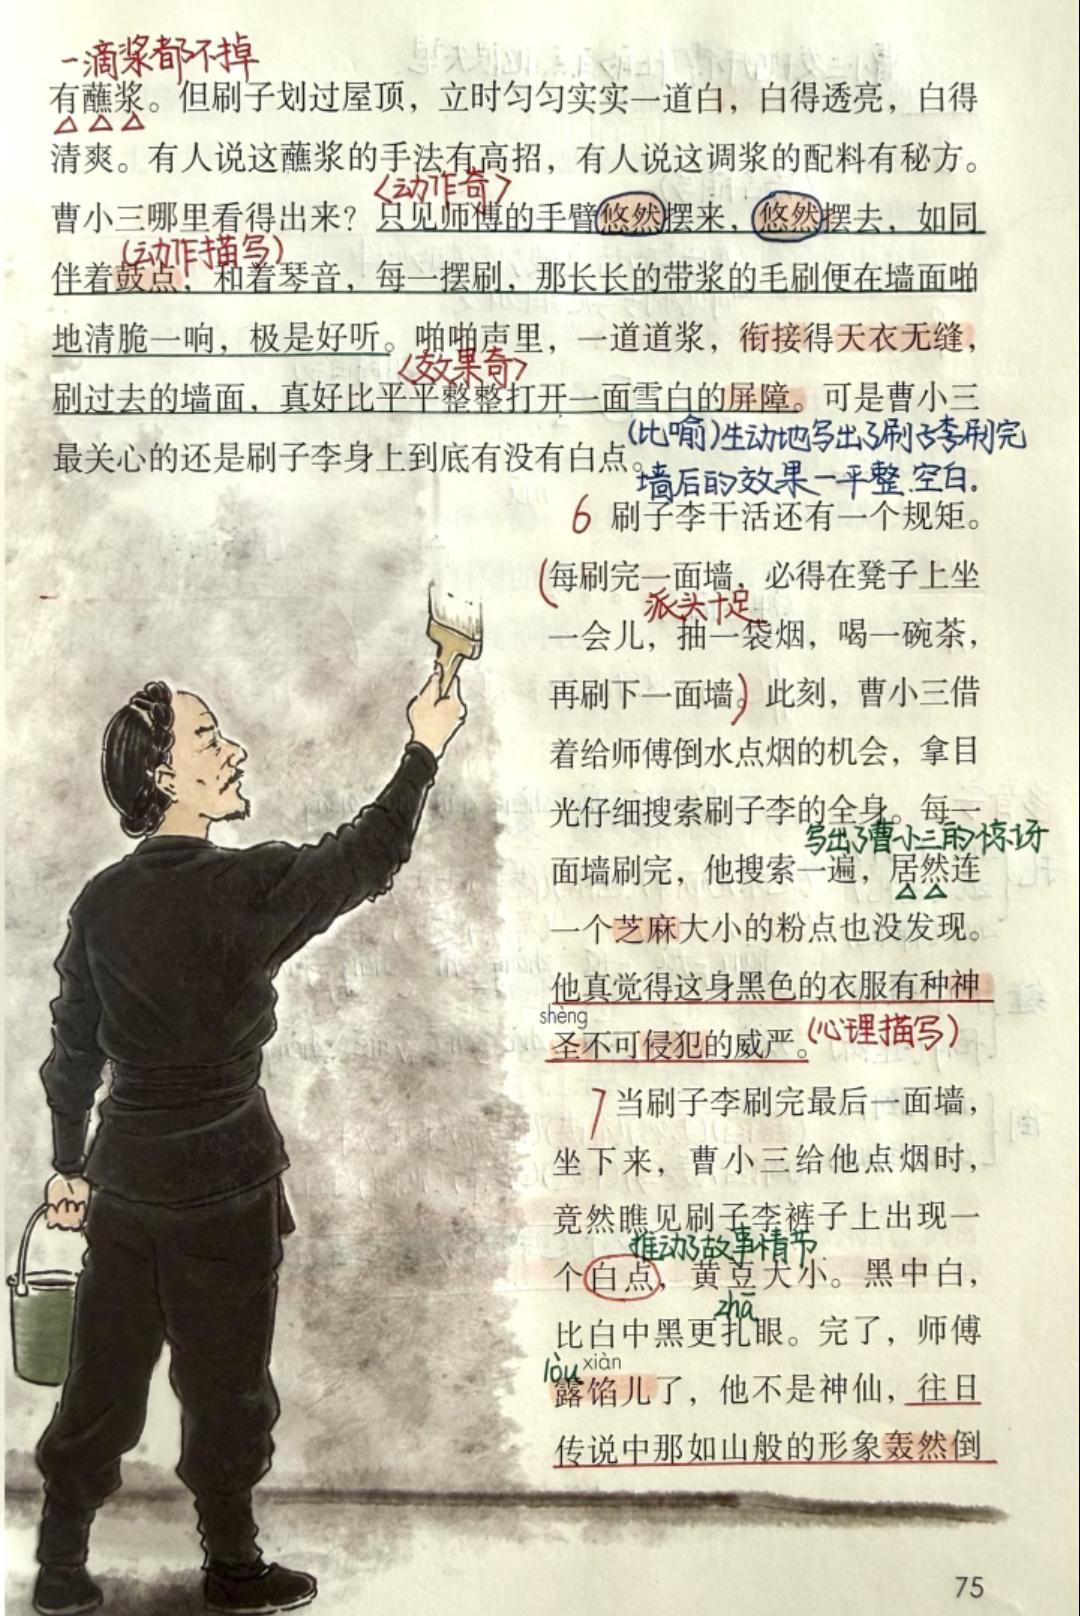 一滴浆都不掉
有蘸浆。但刷子划过屋顶，立时匀匀实实一道白，白得透亮，白得
清爽。有人说这蘸浆的手法有高招，有人说这调浆的配料有秘方。
〈动作奇〉
曹小三哪里看得出来？只见师傅的手臂悠然摆来，悠然摆去，如同
(动作描写)
伴着鼓点，和着琴音，每一摆刷，那长长的带浆的毛刷便在墙面啪
地清脆一响，极是好听。啪啪声里，一道道浆，衔接得天衣无缝，
〈效果奇〉
刷过去的墙面，真好比平平整整打开一面雪白的屏障。可是曹小三
(比喻)生动地写出了刷子李刷完
最关心的还是刷子李身上到底有没有白点。
墙后的效果—平整.空白.
6 刷子李干活还有一个规矩。
(每刷完一面墙，必得在凳子上坐
派头十足
一会儿，抽一袋烟，喝一碗茶，
再刷下一面墙。)此刻，曹小三借
着给师傅倒水点烟的机会，拿目
光仔细搜索刷子李的全身。每一
写出了曹小三的惊讶
面墙刷完，他搜索一遍，居然连
一个芝麻大小的粉点也没发现。
他真觉得这身黑色的衣服有种神
shèng
圣不可侵犯的威严。(心理描写)
7 当刷子李刷完最后一面墙，
坐下来，曹小三给他点烟时，
竟然瞧见刷子李裤子上出现一
推动了故事情节
个白点，黄豆大小。黑中白，
zhā
比白中黑更扎眼。完了，师傅
lòu xiàn
露馅儿了，他不是神仙，往日
传说中那如山般的形象轰然倒
75